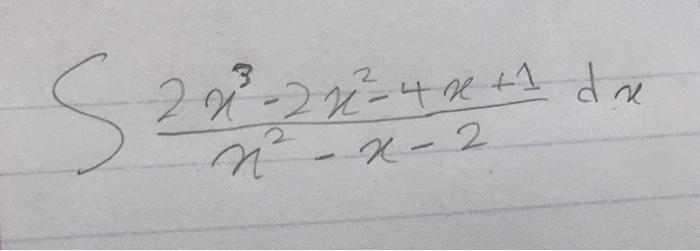 ∫ (2x³-2x²-4x+1)/(x²-x-2) dx